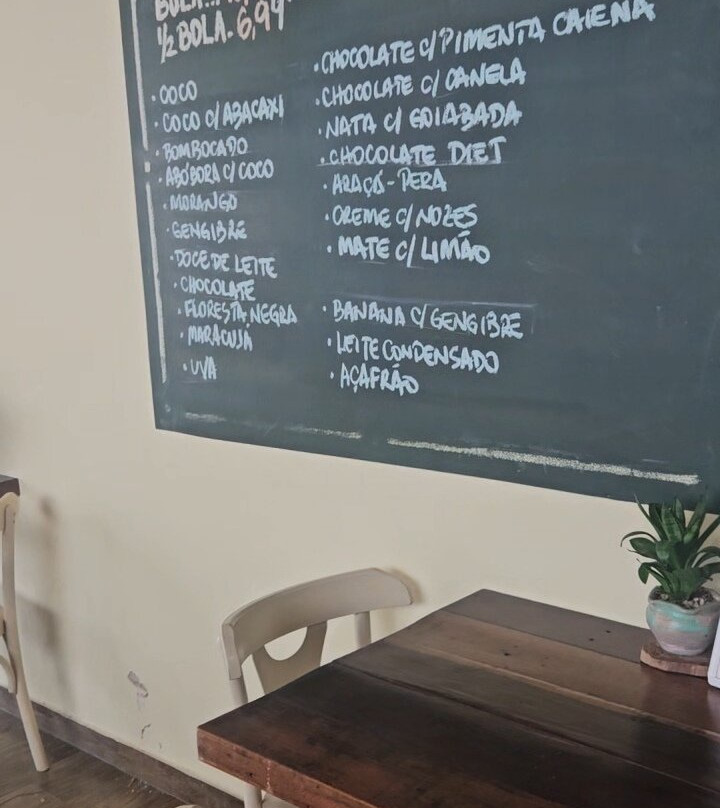 ½ BOLA. 6,99
• COCO
• COCO C/ ABACAXI
• BOMBOCADO
• ABÓBORA C/ COCO
• MORANGO
• GENGIBRE
• DOCE DE LEITE
• CHOCOLATE
• FLORESTA NEGRA
• MARACUJÁ
• UVA
• CHOCOLATE C/ PIMENTA CAIENA
• CHOCOLATE C/ CANELA
• NATA C/ GOIABADA
• CHOCOLATE DIET
• ARAÇÁ-PERA
• CREME C/ NOZES
• MATE C/ LIMÃO
• BANANA C/ GENGIBRE
• LEITE CONDENSADO
• AÇAFRÃO